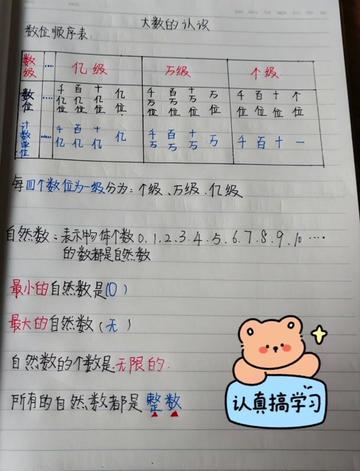 大数的认识
数位顺序表
数级 …… 亿级 万级 个级
数位 …… 千亿位 百亿位 十亿位 亿位 千万位 百万位 十万位 万位 千位 百位 十位 个位
计数单位 …… 千亿 百亿 十亿 亿 千万 百万 十万 万 千 百 十 一
每四个数位为一级分为:个级、万级、亿级
自然数:表示物体个数0.1.2.3.4.5.6.7.8.9.10……
的数都是自然数
最小的自然数是(0)
最大的自然数(无)
自然数的个数是无限的.
所有的自然数都是整数
认真搞学习